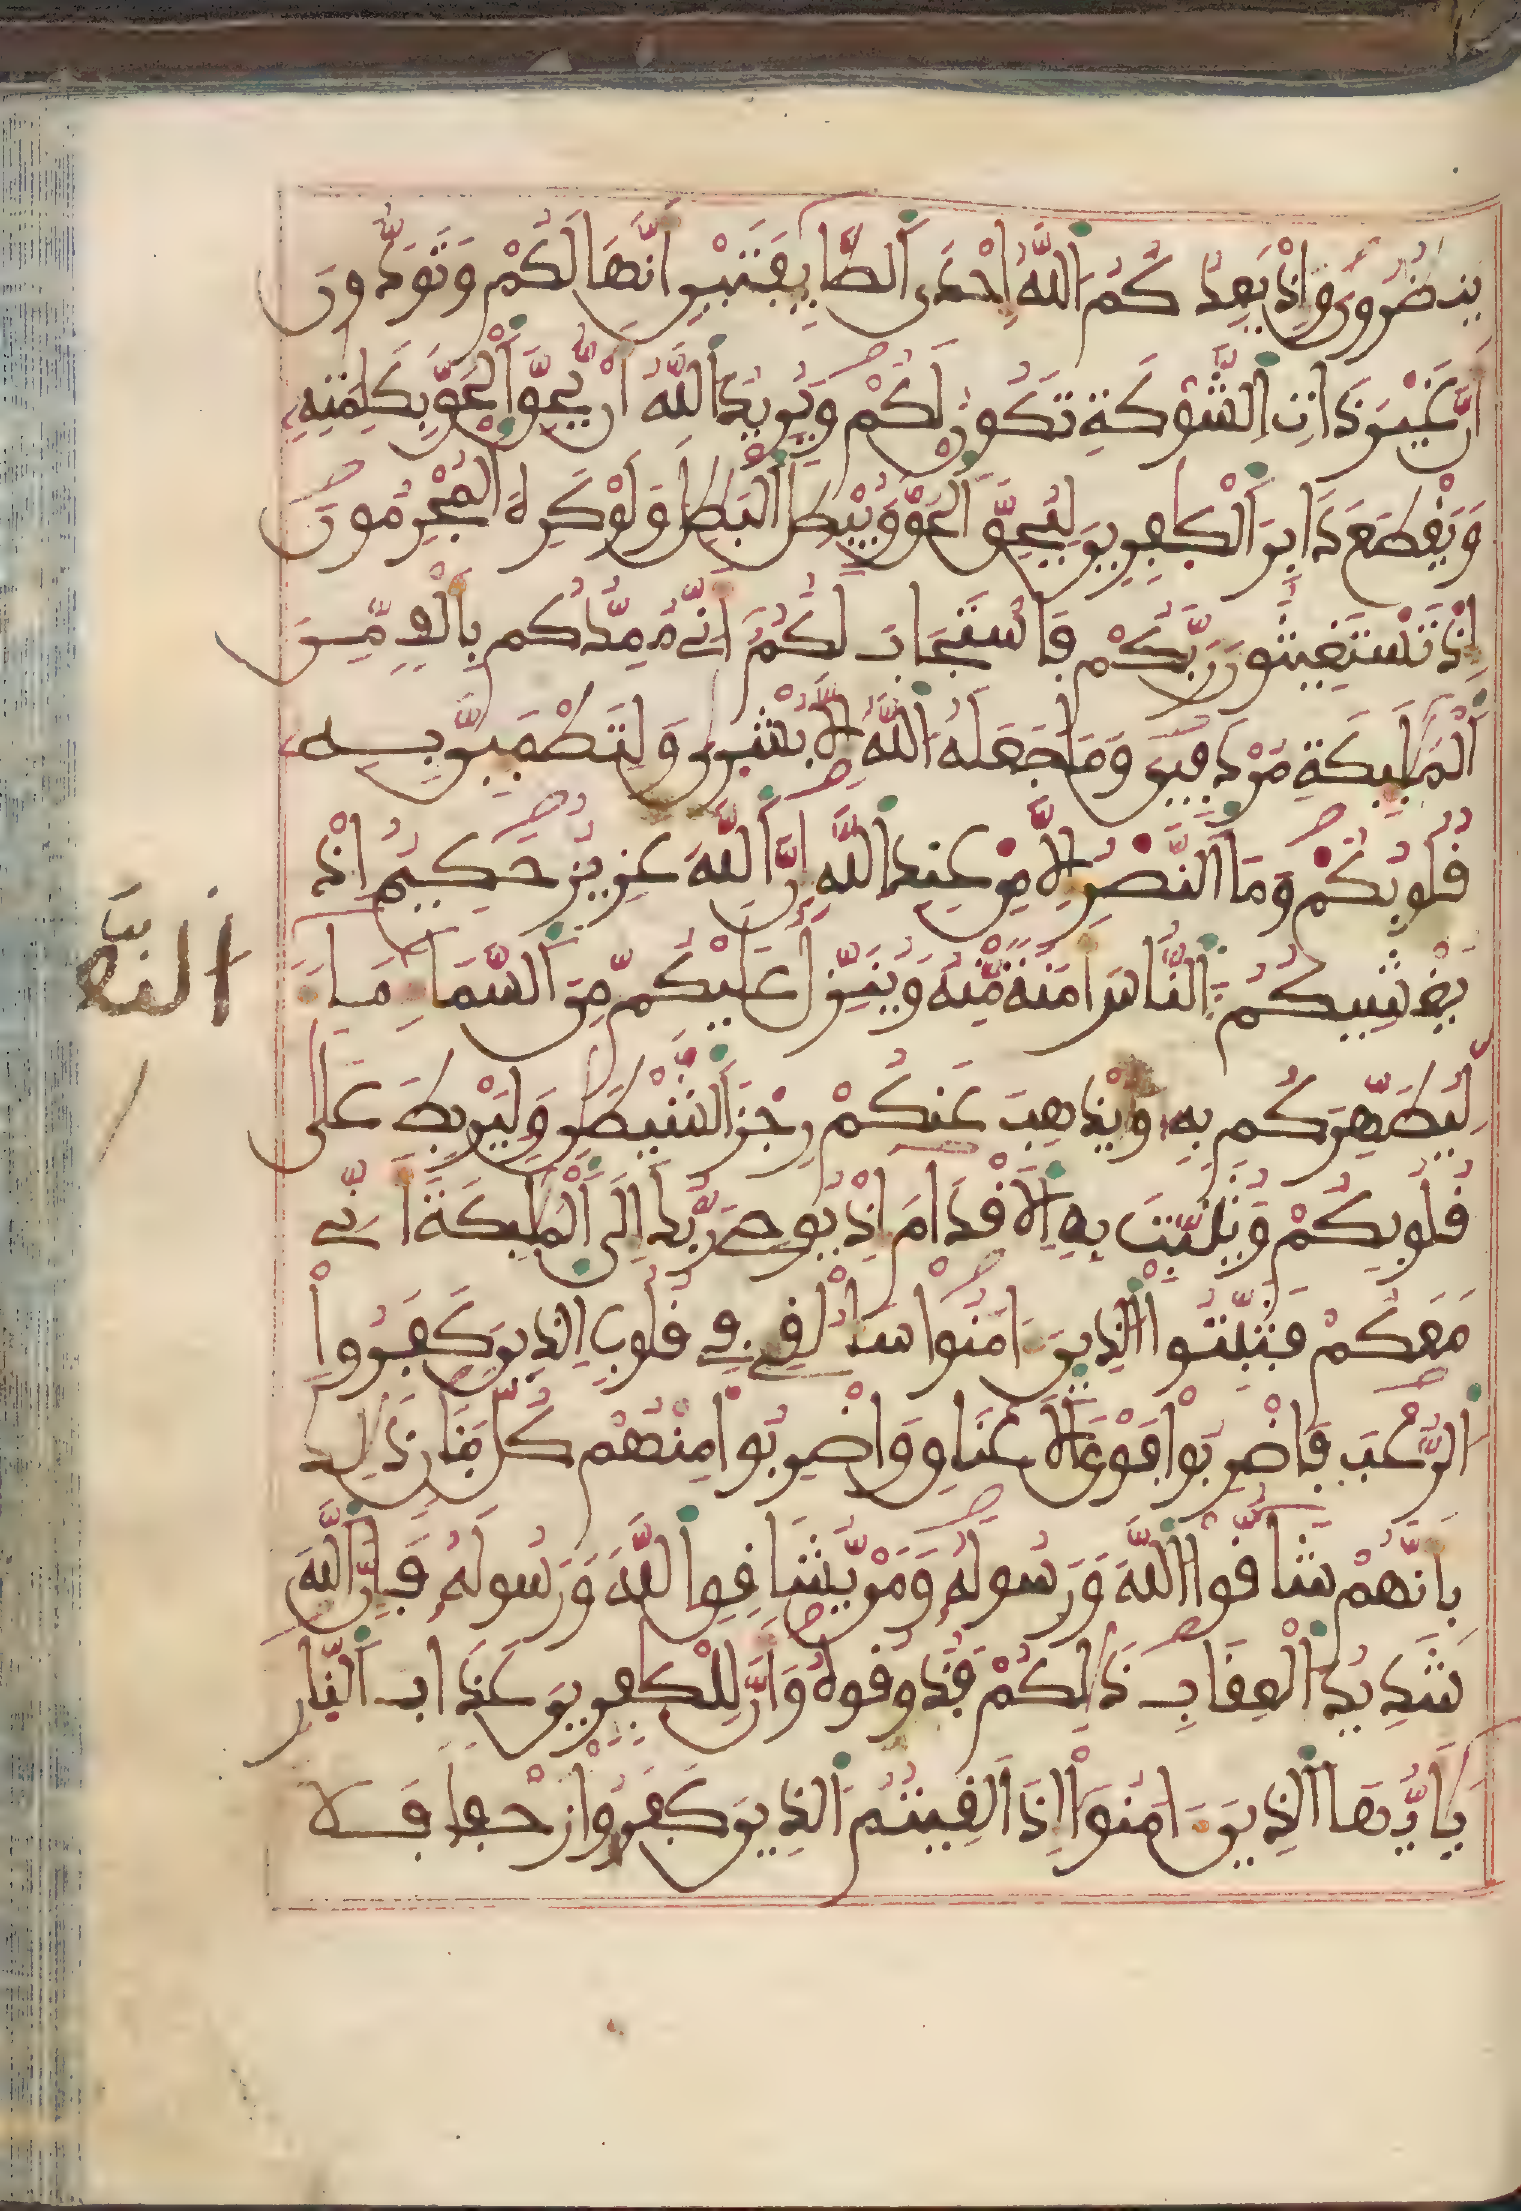 ينظرون وإذ يعدكم الله إحدى الطايفتين أنها لكم وتودون
أن غير ذات الشوكة تكون لكم ويريد الله أن يحق الحق بكلمته
ويقطع دابر الكفرين ليحق الحق ويبطل البطل ولو كره المجرمون
إذ تستغيثون ربكم فاستجاب لكم أني ممدكم بألف من
الملئكة مردفين وما جعله الله إلا بشرى ولتطمين به
قلوبكم وما النصر إلا من عند الله إن الله عزيز حكيم إذ
يغشيكم النعاس امنة منه وينزل عليكم من السماء ماء
ليطهركم به ويذهب عنكم رجز الشيطن وليربط على
قلوبكم ويثبت به الاقدام إذ يوحي ربك إلى الملئكة أني
معكم فثبتوا الذين ءامنوا سألقي في قلوب الذين كفروا
الرعب فاضربوا فوق الاعناق واضربوا منهم كل بنان ذلك
بأنهم شاقوا الله ورسوله ومن يشاقق الله ورسوله فإن الله
شديد العقاب ذلكم فذوقوه وأن للكفرين عذاب النار
يأيها الذين ءامنوا إذا لقيتم الذين كفروا زحفا فلا